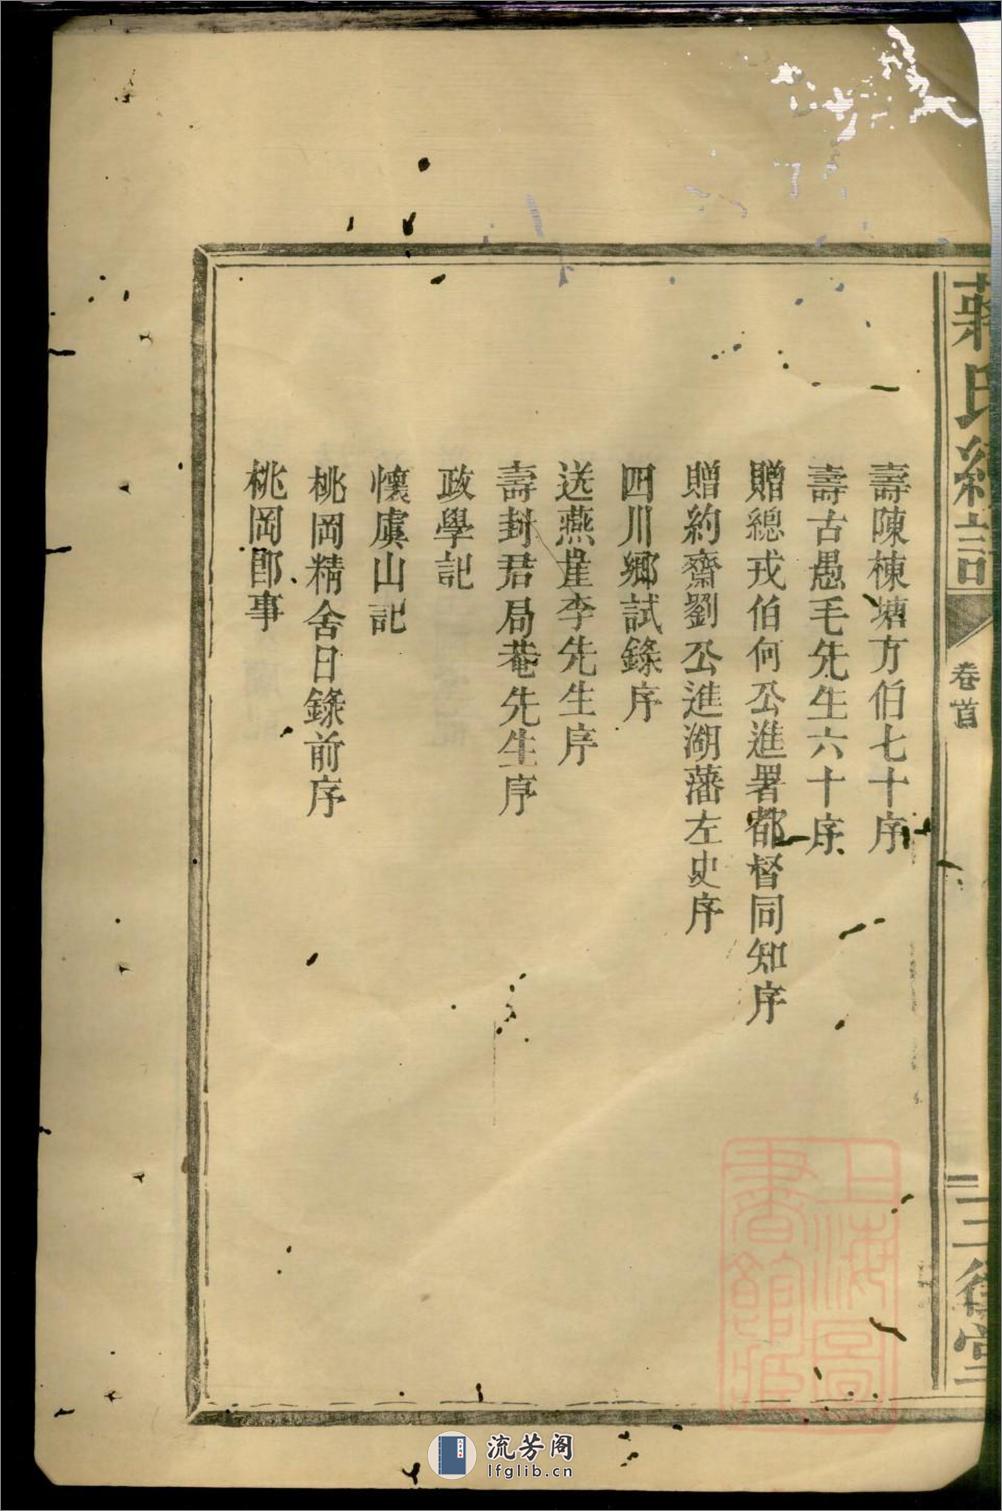 壽陳棟塘方伯七十序
壽古愚毛先生六十序
贈總戎伯何公進署都督同知序
贈約齋劉公進湖藩左史序
四川鄉試錄序
送燕崖李先生序
壽封君局菴先生序
政學記
懷虞山記
桃岡精舍日錄前序
桃岡郎事
蔣氏續譜
卷首
三徑堂
上海圖書館藏
流芳阁
lfglib.cn